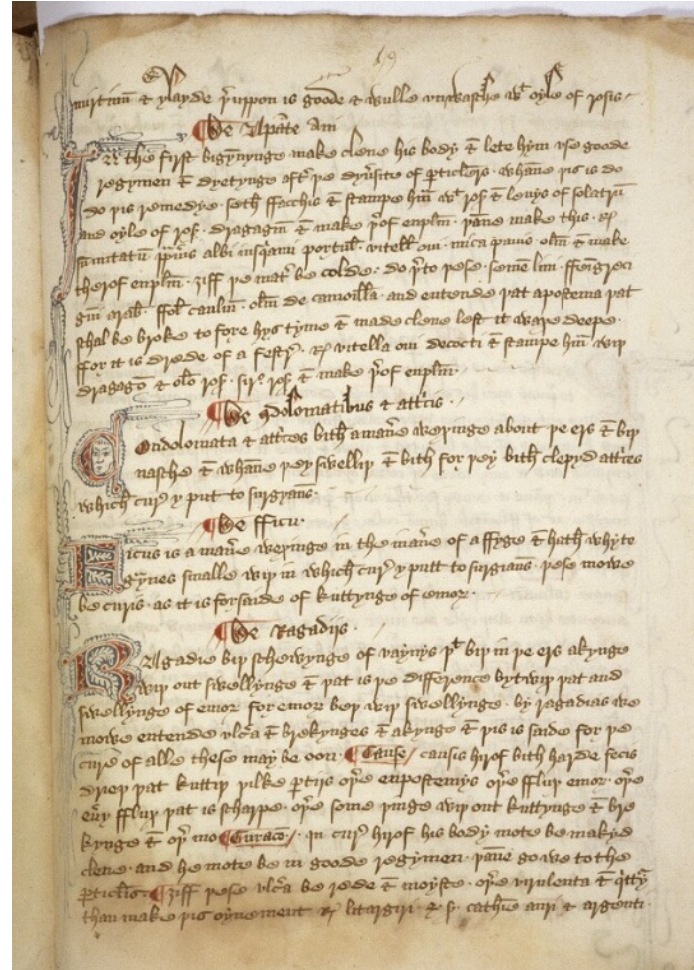 mirtini & y layde þ uppon is goode & wulle unwasche wt oyle of rosis
De Apate Ani
In the first bigynnynge make clene his body & lete hym use goode
regymen & dyetynge aftr þe dyvsite of pticlers. whane þis is do
do þis remedye. seth fecchis & stampe hm wt ros & levys of solatru
and oyle of ros. dragagm & make þof enplm. þane make this. R
albi portul. vitell ovi. mica panis. olm & make
therof enplm. ziff þe matr be colde: do þto pese. semē lini. ffengreci
gmi arab. ffol caulm. olm de camoilla. and entende þat apostema þat
schal be broke to fore hys tyme & made clene lest it ware deepe.
ffor it is drede of a festr. R vitella ovi decocti & stampe hm wiþ
dragago & olo ros. sir. ros & make þof enplm.
De 9dolomatibus & attris.
Condolomata & attres bith a mane wexinge about þe ers & biþ
nasche & whane þey swelliþ & bith for þey bith clepyd attres
which cur y put to surgyans.
De fficu.
Ficus is a mane wexinge in the mane of a ffyge & hath whyte
gynes smalle wiþ in which cur y putt to surgians. þese mowe
be curis. as it is forsaide of kuttynge of emor.
De Ragadijs.
Ragadie biþ schewynge of vaynys þt biþ in þe ers akynge
wiþ out swellynge & þat is þe difference bytwiþ þat and
swellynge of emor. for emor beþ wiþ swellynge. by ragadias we
mowe entende ulcra & brekynges & akynge & þis is saide for þe
cure of alle these may be oon. Cause / causis hirof bith harde fecis
driep þat kuttiþ þilke ptijs oþe enpostemys oþe ffluþ emor. oþe
ey ffluþ þat is scharpe. oþe some þinge wiþ out kuttynge & bre
kynge & oþ mo Curaco / In cur hirof his body mote be makyd
clene. and he mote be in goode regymen. þane go we to the
pticlis. ziff þese ulcra be rede & moyste. oþe virulenta &
than make þis oynement R litargiri. cathie auri & argenti.